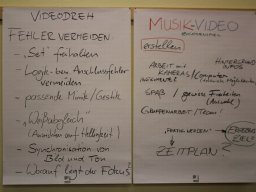 VIDEODREH
FEHLER VERMEIDEN:
- "Set" freihalten
- Logik- bzw. Anschlussfehler
vermeiden
- passende Mimik/Gestik
- "Weißabgleich"
(Ausrichten auf Helleffekt)
- Synchronisation von
Bild und Ton
- Worauf liegt der Fokus?
MUSIK-VIDEO
erstellen
ARBEIT MIT
KAMERAS/Computer
HINTERGRUND
INFOS
SPAß / gewisse Freiheiten
(Auswahl)
GRUPPENARBEIT / Team
"FERTIG WERDEN"
ERGEBNIS
ZIEL
ZEITPLAN